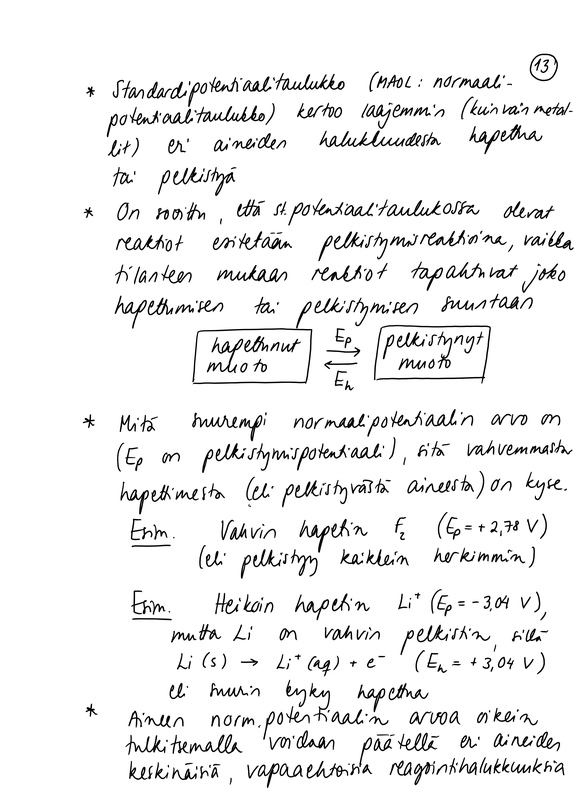 13
* Standardipotentiaalitaulukko (MAOL: normaali-
potentiaalitaulukko) kertoo laajemmin (kuin vain metal-
lit) eri aineiden halukkuudesta hapettua
tai pelkistyä
* On sovittu, että st.potentiaalitaulukossa olevat
reaktiot esitetään pelkistymisreaktioina, vaikka
tilanteen mukaan reaktiot tapahtuvat joko
hapettumisen tai pelkistymisen suuntaan
hapettunut muoto ⇄ pelkistynyt muoto
Ep
Eh
* Mitä suurempi normaalipotentiaalin arvo on
(Ep on pelkistymispotentiaali), sitä vahvemmasta
hapettimesta (eli pelkistyvästä aineesta) on kyse.
Esim. Vahvin hapetin F₂ (Ep = +2,78 V)
(eli pelkistyy kaikkein herkimmin)
Esim. Heikoin hapetin Li⁺ (Ep = −3,04 V),
mutta Li on vahvin pelkistin, sillä
Li (s) → Li⁺ (aq) + e⁻ (Eh = +3,04 V)
eli suurin kyky hapettua
* Aineen norm.potentiaalin arvoa oikein
tulkitsemalla voidaan päätellä eri aineiden
keskinäisiä, vapaaehtoisia reagointihalukkuuksia